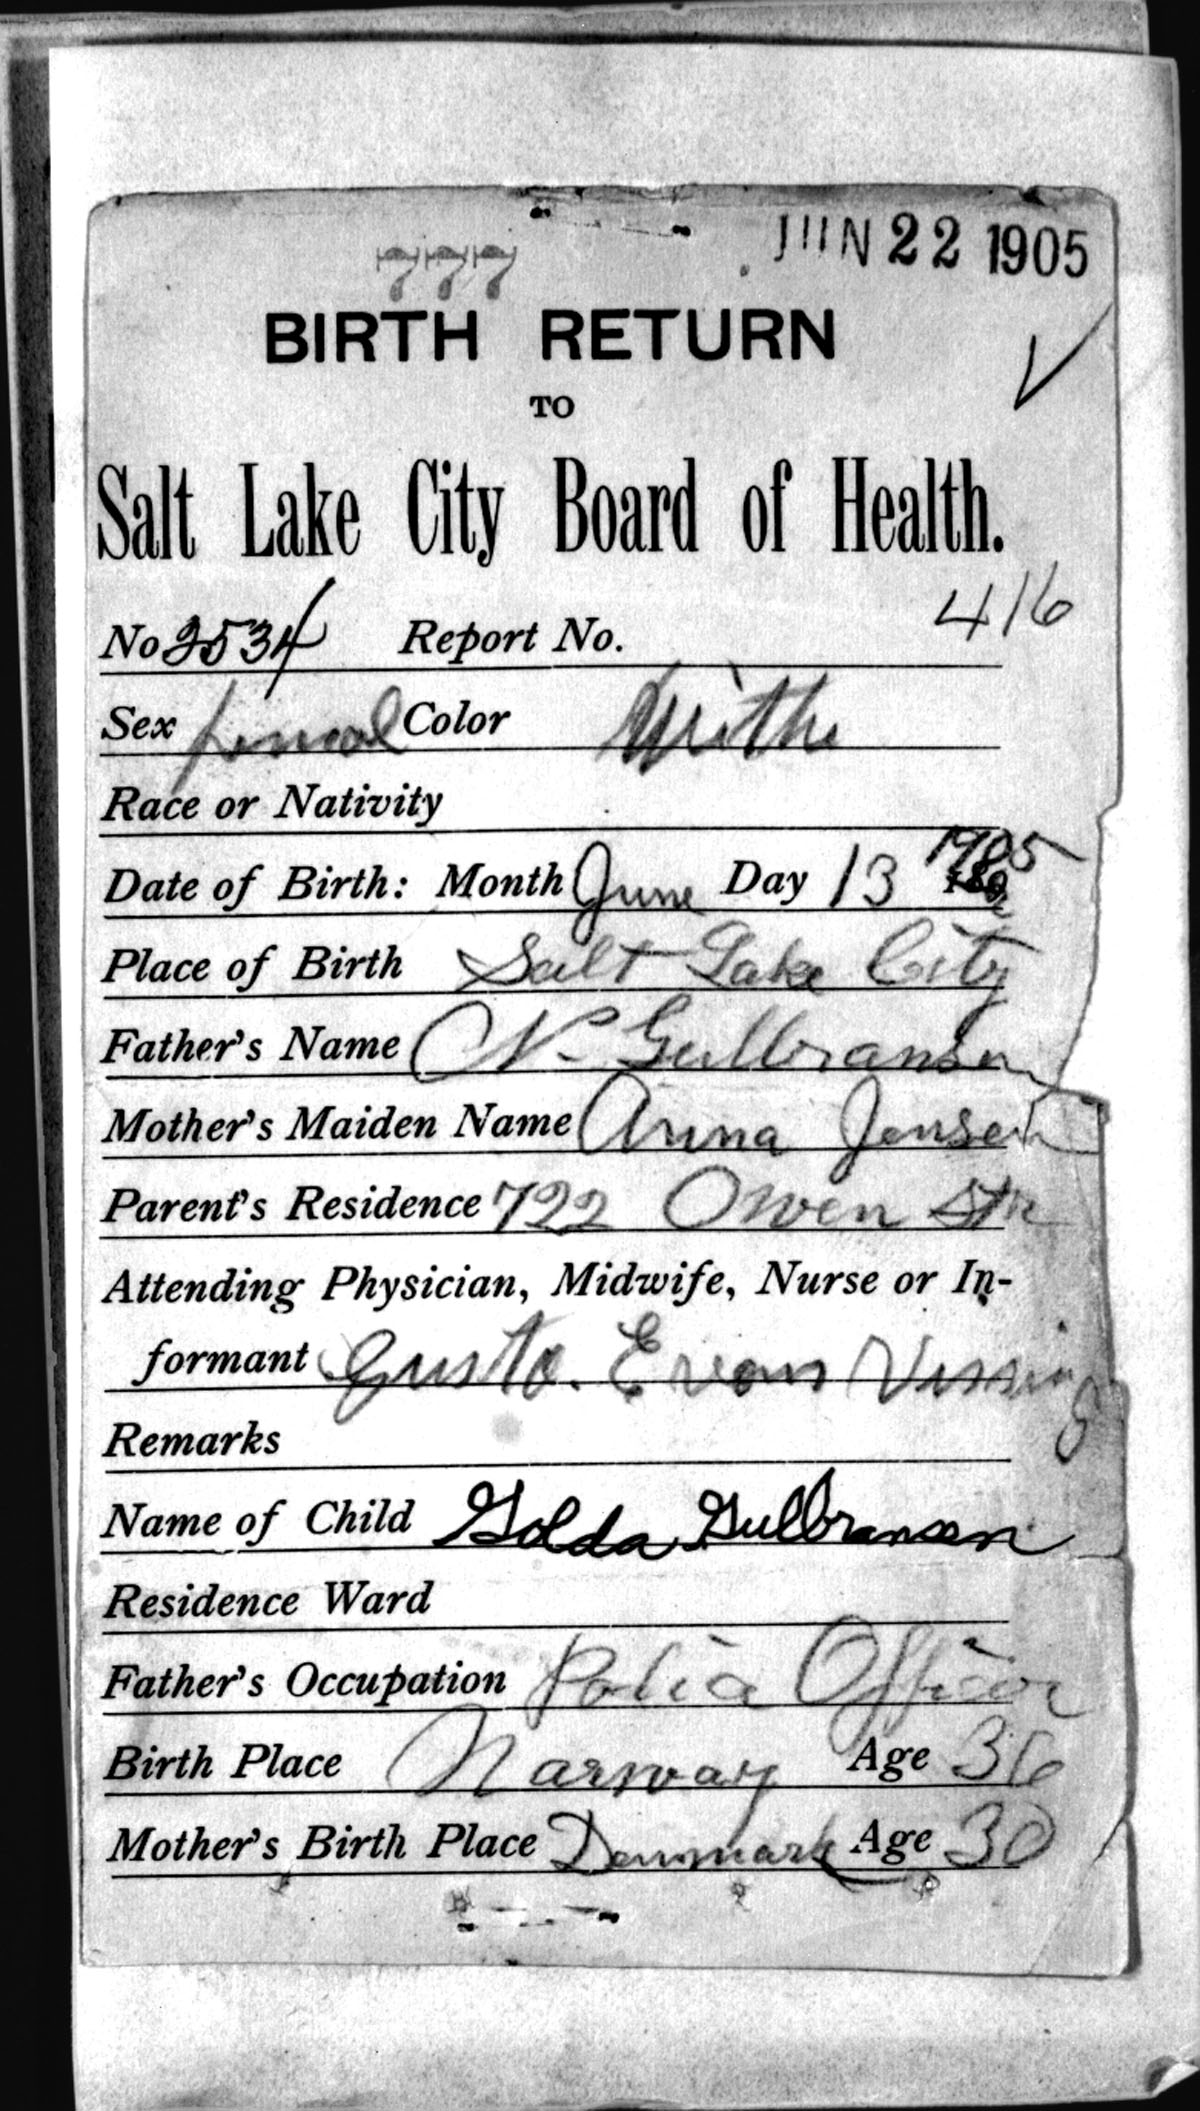 JUN 22 1905
777
BIRTH RETURN
TO
Salt Lake City Board of Health.
416
No 2534 Report No.
Sex femal Color Withe
Race or Nativity
Date of Birth: Month June Day 13 1905
Place of Birth Salt Lake City
Father's Name N. Gulbransen
Mother's Maiden Name Anna Jensen
Parent's Residence 722 Owen Str
Attending Physician, Midwife, Nurse or In-
formant Gusta. Evans Vissing
Remarks
Name of Child Golda Gulbransen
Residence Ward
Father's Occupation Police Officer
Birth Place Narway Age 36
Mother's Birth Place Denmark Age 30